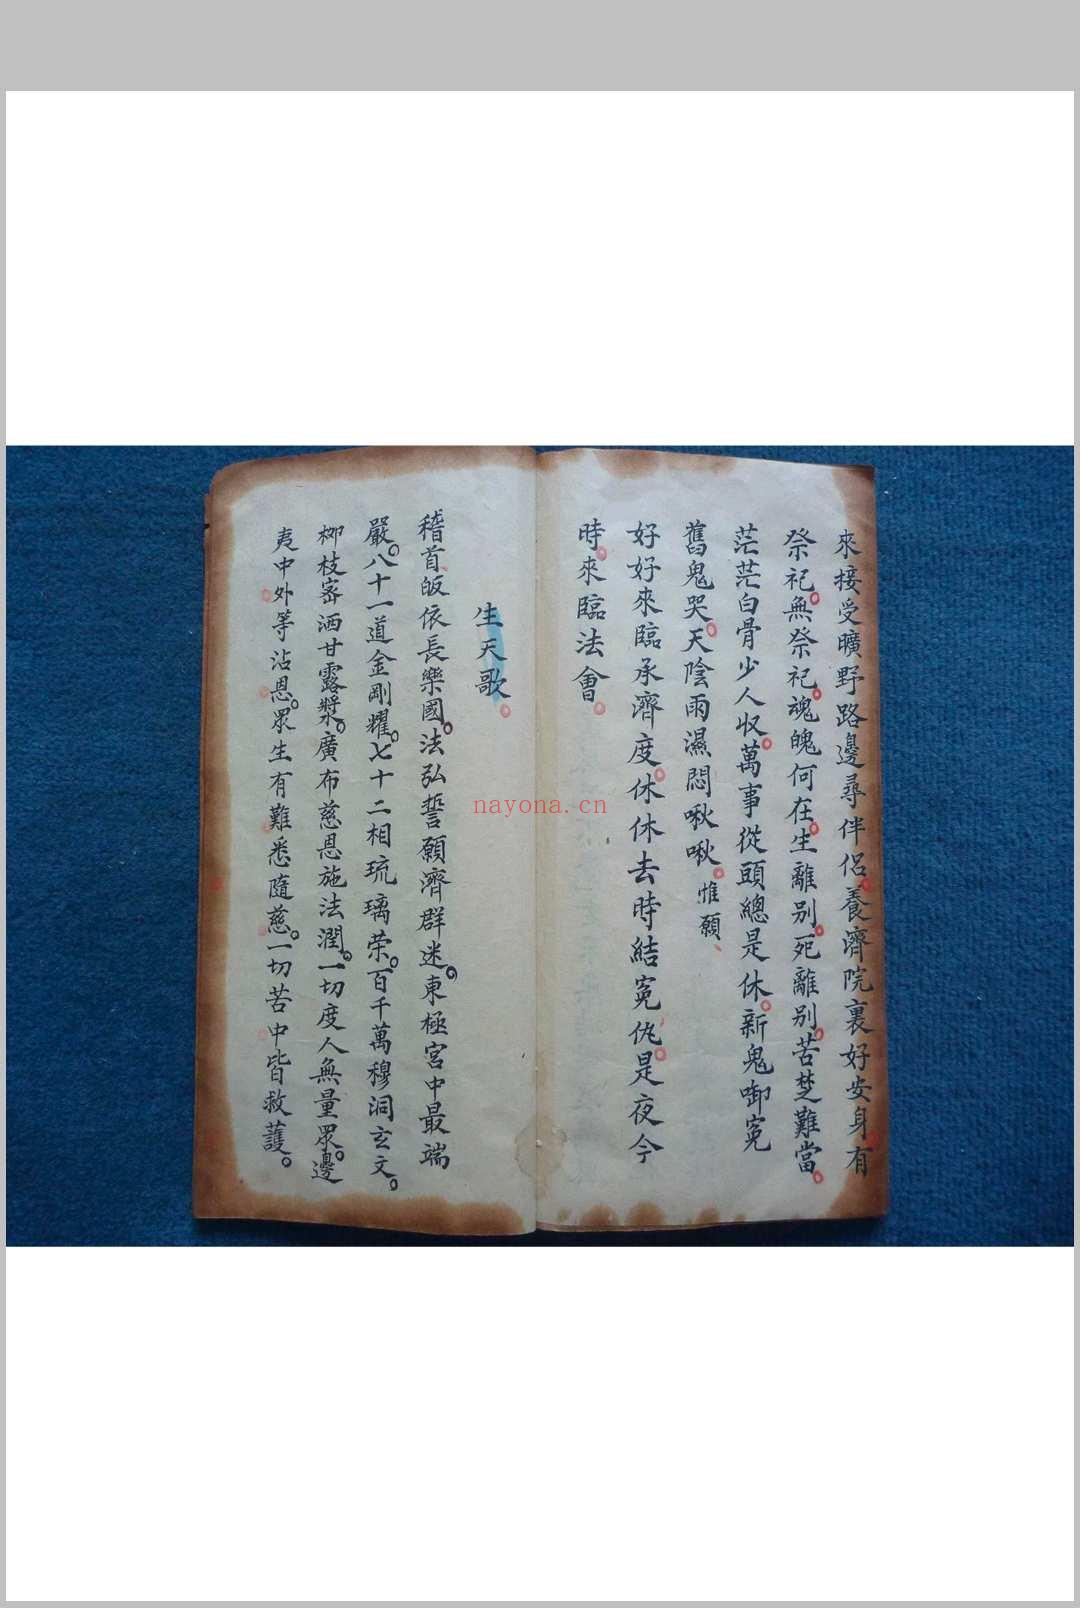 來接受曠野路邊尋伴侶。養濟院裏好安身。有
祭祀。無祭祀。魂魄何在。生離別。死離別。苦楚難當。
茫茫白骨少人收。萬事從頭總是休。新鬼啣冤
舊鬼哭。天陰雨濕悶啾啾。惟願、
好好來臨承濟度。休休去時結冤仇。是夜今
時。來臨法會。
生天歌。
稽首皈依長樂國。法弘誓願濟群迷。東極宮中最端
嚴。八十一道金剛耀。七十二相琉璃荣。百千萬穆洞玄文。
柳枝密洒甘露漿。廣布慈恩施法潤。一切度人無量眾。邊
夷中外等沾恩。眾生有難悉隨慈。一切苦中皆救護。
nayona.cn